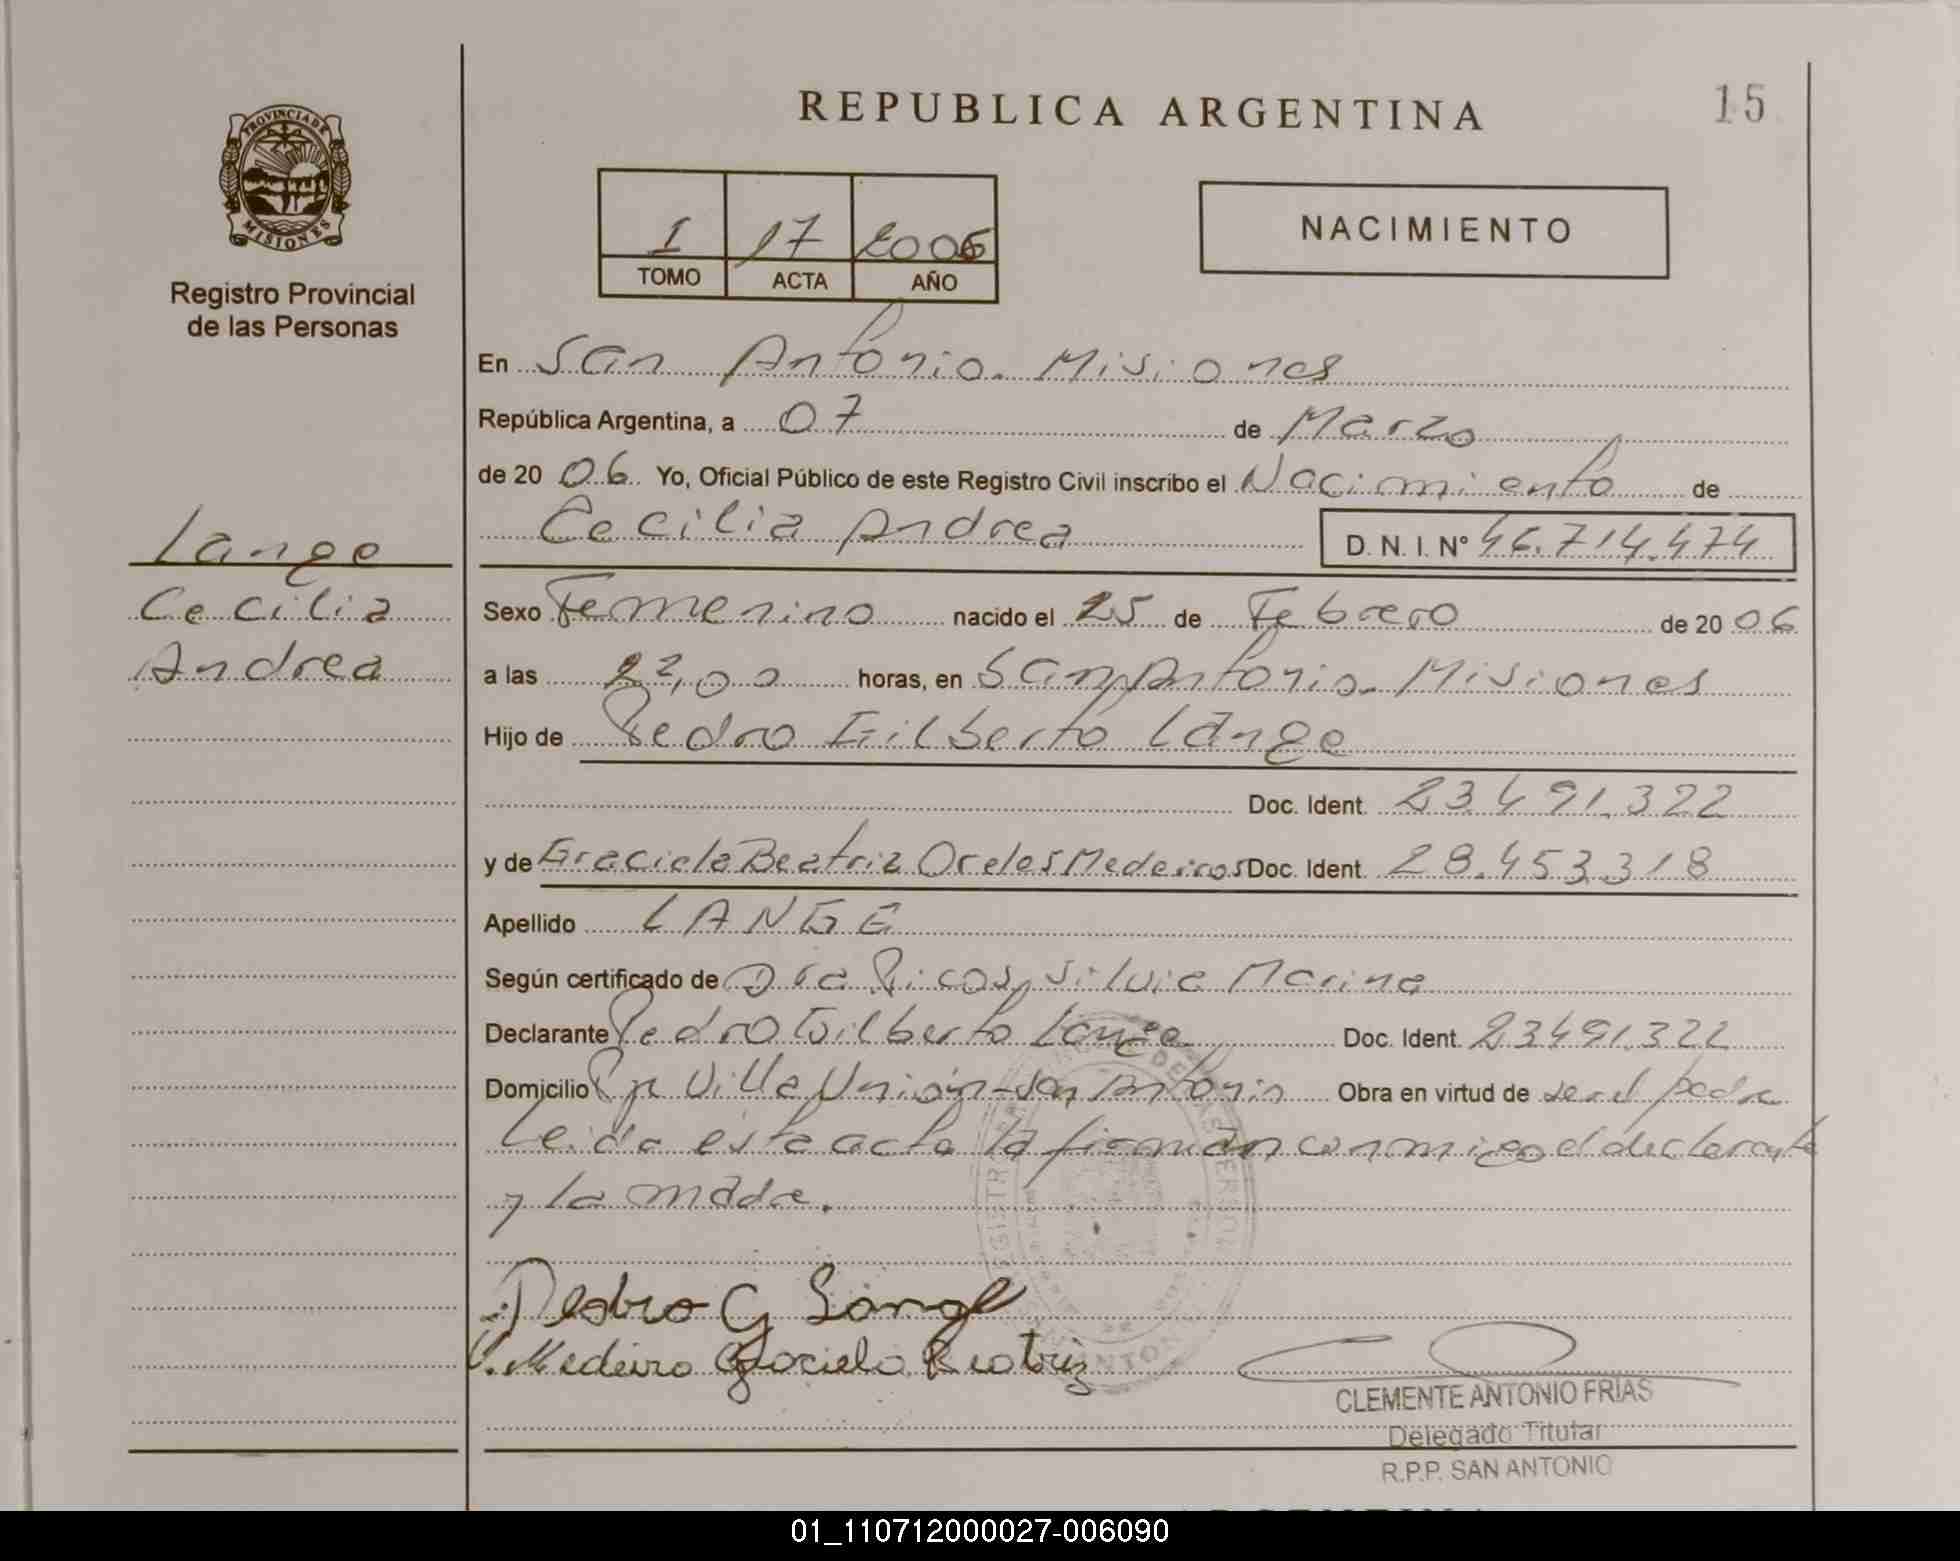 REPUBLICA ARGENTINA
15
PROVINCIA DE
MISIONES
Registro Provincial
de las Personas
1 17 2006
TOMO ACTA AÑO
NACIMIENTO
En San Antonio. Misiones
República Argentina, a 07 de Marzo
de 20 06 Yo, Oficial Público de este Registro Civil inscribo el Nacimiento de
Cecilia Andrea D. N. I. Nº 46.714.474
Lange
Cecilia
Andrea
Sexo Femenino nacido el 25 de Febrero de 20 06
a las 22,00 horas, en San Antonio. Misiones
Hijo de Pedro Gilberto Lange
Doc. Ident. 23491.322
y de Graciela Beatriz Oreles Medeiros Doc. Ident. 28.453.318
Apellido LANGE
Según certificado de Dra Ricos, Silvia Marina
Declarante Pedro Gilberto Lange Doc. Ident. 23491.322
Domicilio Pje Villa Unión-San Antonio Obra en virtud de ser el padre
Leida esta acta la firman conmigo el declarante
y la madre.
Pedro G Lange
Medeiro Graciela Beatriz
CLEMENTE ANTONIO FRIAS
Delegado Titular
R.P.P. SAN ANTONIO
01_110712000027-006090